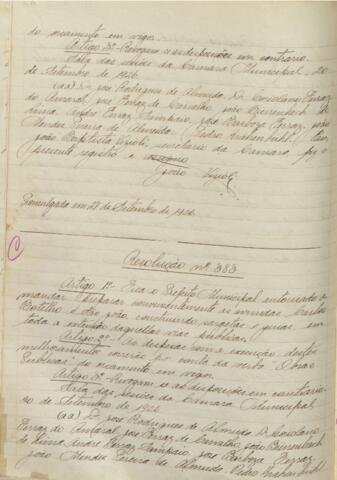 do orçamento em vigor.
Artigo 3º - Revogam-se as disposições em contrario.
Sala das sessões da Camara Municipal, 20
de Setembro de 1926.
(aa) D. José Rodrigues de Almeida, D. Coriolano Ferraz
do Amaral, José Ferraz de Carvalho, João Bierrenbach de
Lima, André Ferraz Sampaio, José Barboza Ferraz, João
Mendes Pereira de Almeida, Pedro Krahenbuhl. Eu,
João Baptista Vizioli, secretario da Camara, fiz o
presente registro e
João Vizioli
Promulgada em 27 de Setembro de 1926.
C
Resolução nº 383
Artigo 1º - Fica o Prefeito Municipal autorizado a
mandar preparar convenientemente as avenidas Carlos
Botelho e São João concluindo sargetas e guias, em
toda a extensão daquellas vias publicas.
Artigo 2º - As despesas com a execução destes
melhoramentos correrão por conta da verba "Obras
Publicas" do orçamento em vigor.
Artigo 3º - Revogam-se as disposições em contrario.
Sala das sessões da Camara Municipal,
20 de Setembro de 1926.
(aa) D. José Rodrigues de Almeida, D. Coriolano
Ferraz do Amaral, José Ferraz de Carvalho, João Bierrenbach
de Lima, André Ferraz Sampaio, José Barboza Ferraz,
João Mendes Pereira de Almeida, Pedro Krahenbuhl